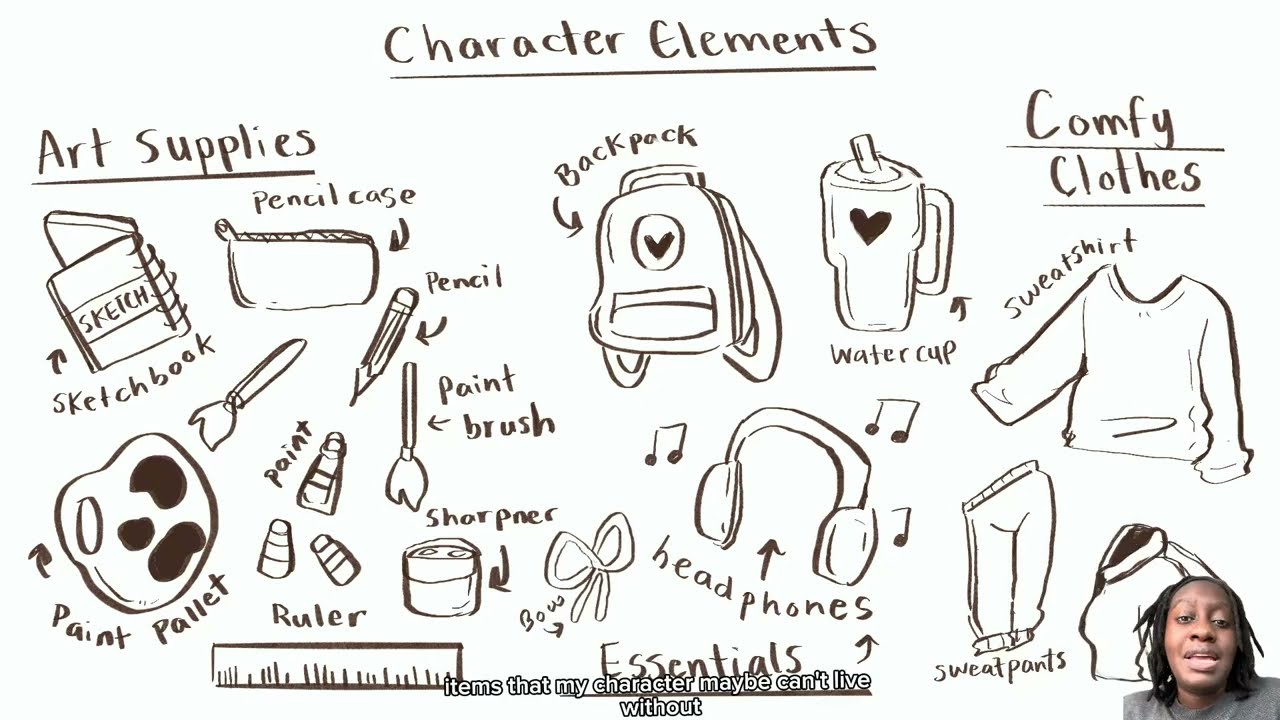 Character Elements
Art Supplies
Pencil case
SKETCH
Sketchbook
Pencil
Paint
brush
paint
Paint Pallet
sharpner
Ruler
Backpack
water cup
headphones
Bow
Essentials
Comfy
Clothes
sweatshirt
sweatpants
items that my character maybe can't live
without